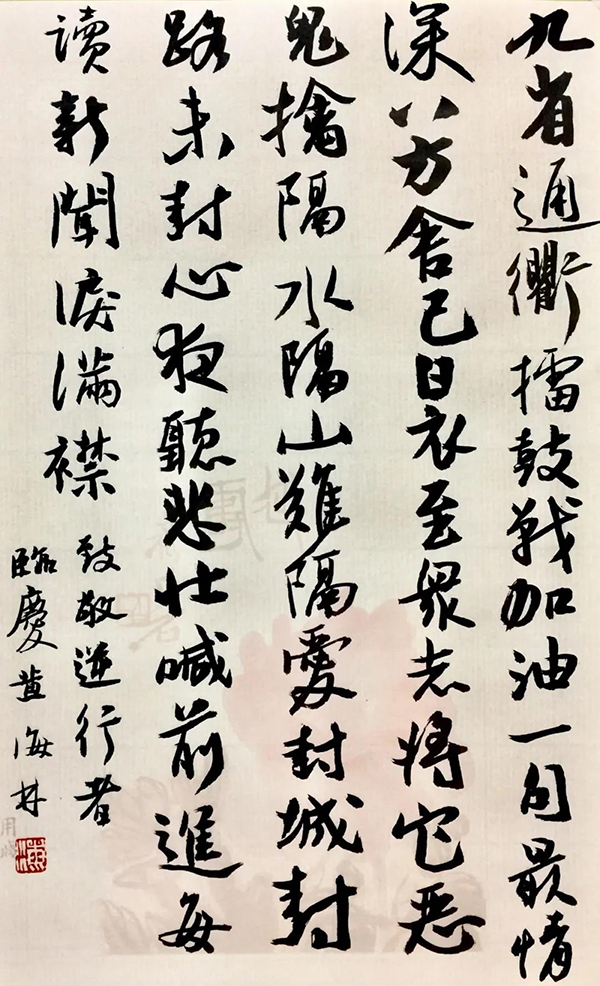 九省通衢擂鼓戰加油一句最情
深八方舍己白衣至衆志将它惡
鬼擒隔水隔山難隔愛封城封
路未封心夜聽悲壮喊前進每
讀新聞淚滿襟
致敬逆行者
臨慶黄海林